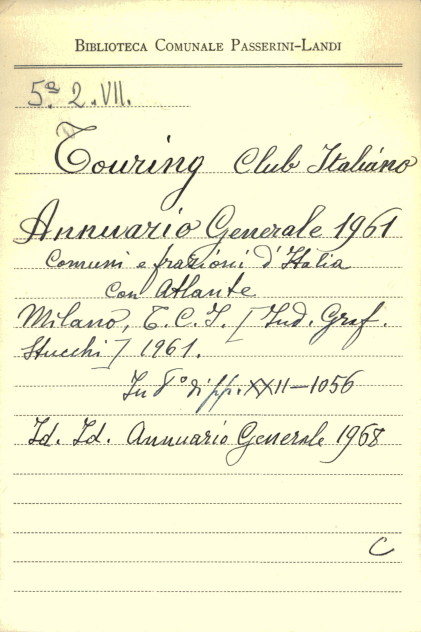 BIBLIOTECA COMUNALE PASSERINI-LANDI
5ª. 2. VII.
Touring Club Italiano
Annuario Generale 1961
Comuni e frazioni d'Italia
con Atlante
Milano, T. C. I. [Ind. Graf.
Stucchi] 1961.
In 8° di pp. XXII-1056
Id. Id. Annuario Generale 1968
C